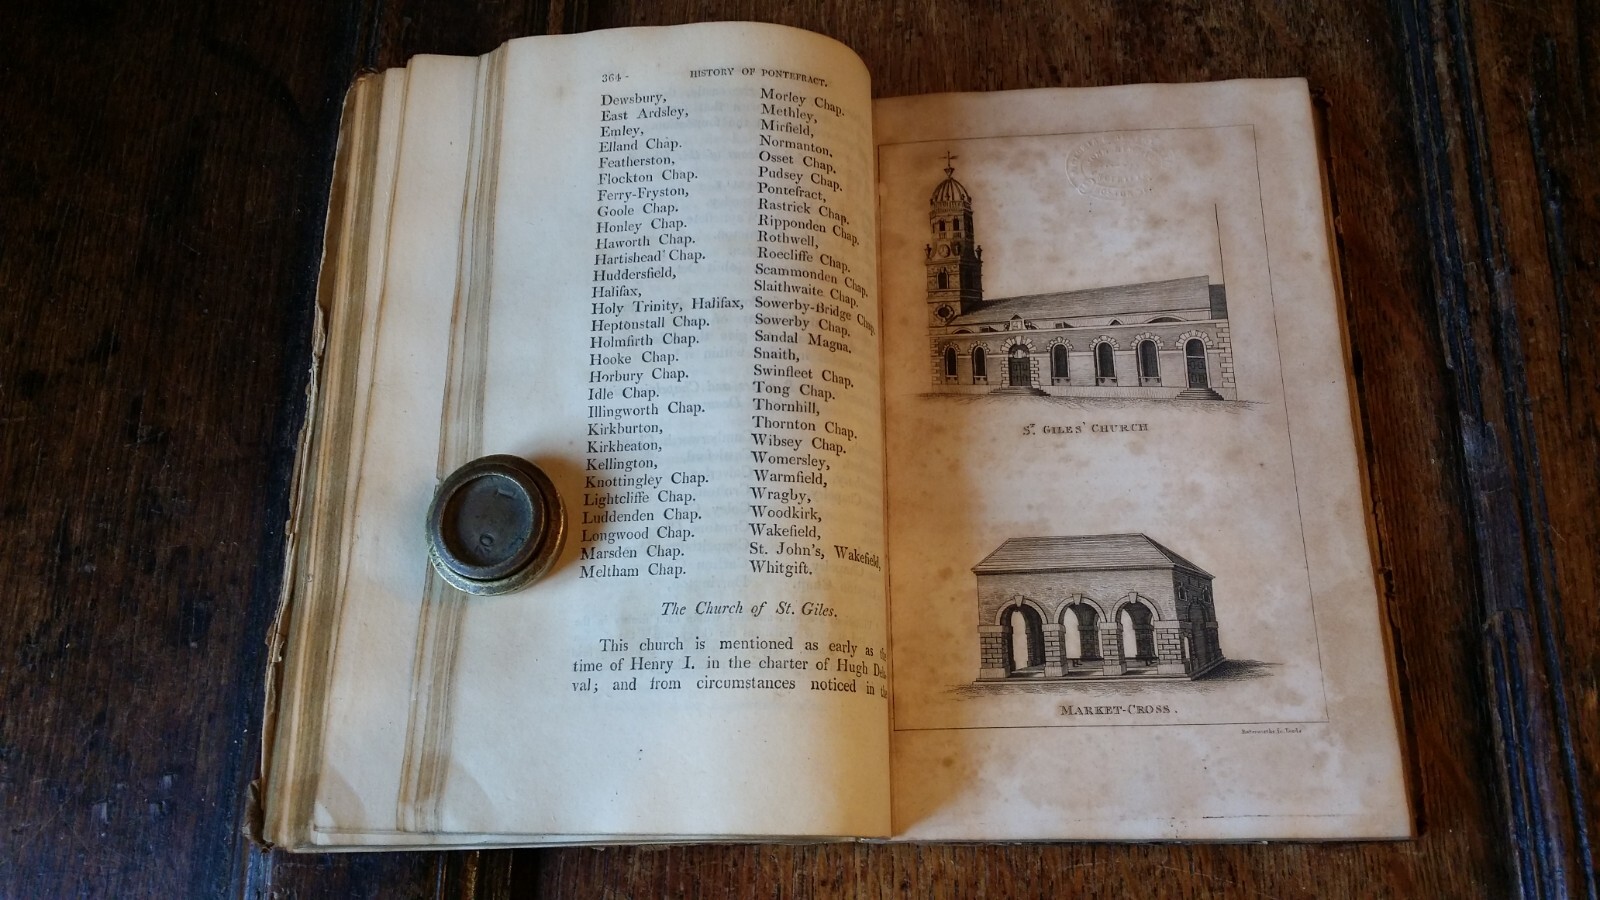 364
HISTORY OF PONTEFRACT.
Dewsbury,
East Ardsley,
Emley,
Elland Chap.
Featherston,
Flockton Chap.
Ferry-Fryston,
Goole Chap.
Honley Chap.
Haworth Chap.
Hartishead Chap.
Huddersfield,
Halifax,
Holy Trinity, Halifax,
Heptonstall Chap.
Holmfirth Chap.
Hooke Chap.
Horbury Chap.
Idle Chap.
Illingworth Chap.
Kirkburton,
Kirkheaton,
Kellington,
Knottingley Chap.
Lightcliffe Chap.
Luddenden Chap.
Longwood Chap.
Marsden Chap.
Meltham Chap.
Morley Chap.
Methley,
Mirfield,
Normanton,
Osset Chap.
Pudsey Chap.
Pontefract,
Rastrick Chap.
Ripponden Chap.
Rothwell,
Roecliffe Chap.
Scammonden Chap.
Slaithwaite Chap.
Sowerby-Bridge Chap.
Sowerby Chap.
Sandal Magna.
Snaith,
Swinfleet Chap.
Tong Chap.
Thornhill,
Thornton Chap.
Wibsey Chap.
Womersley,
Warmfield,
Wragby,
Woodkirk,
Wakefield,
St. John's, Wakefield,
Whitgift.
The Church of St. Giles.
This church is mentioned as early as
time of Henry I. in the charter of Hugh
val; and from circumstances noticed in
ST. GILES' CHURCH
MARKET-CROSS.